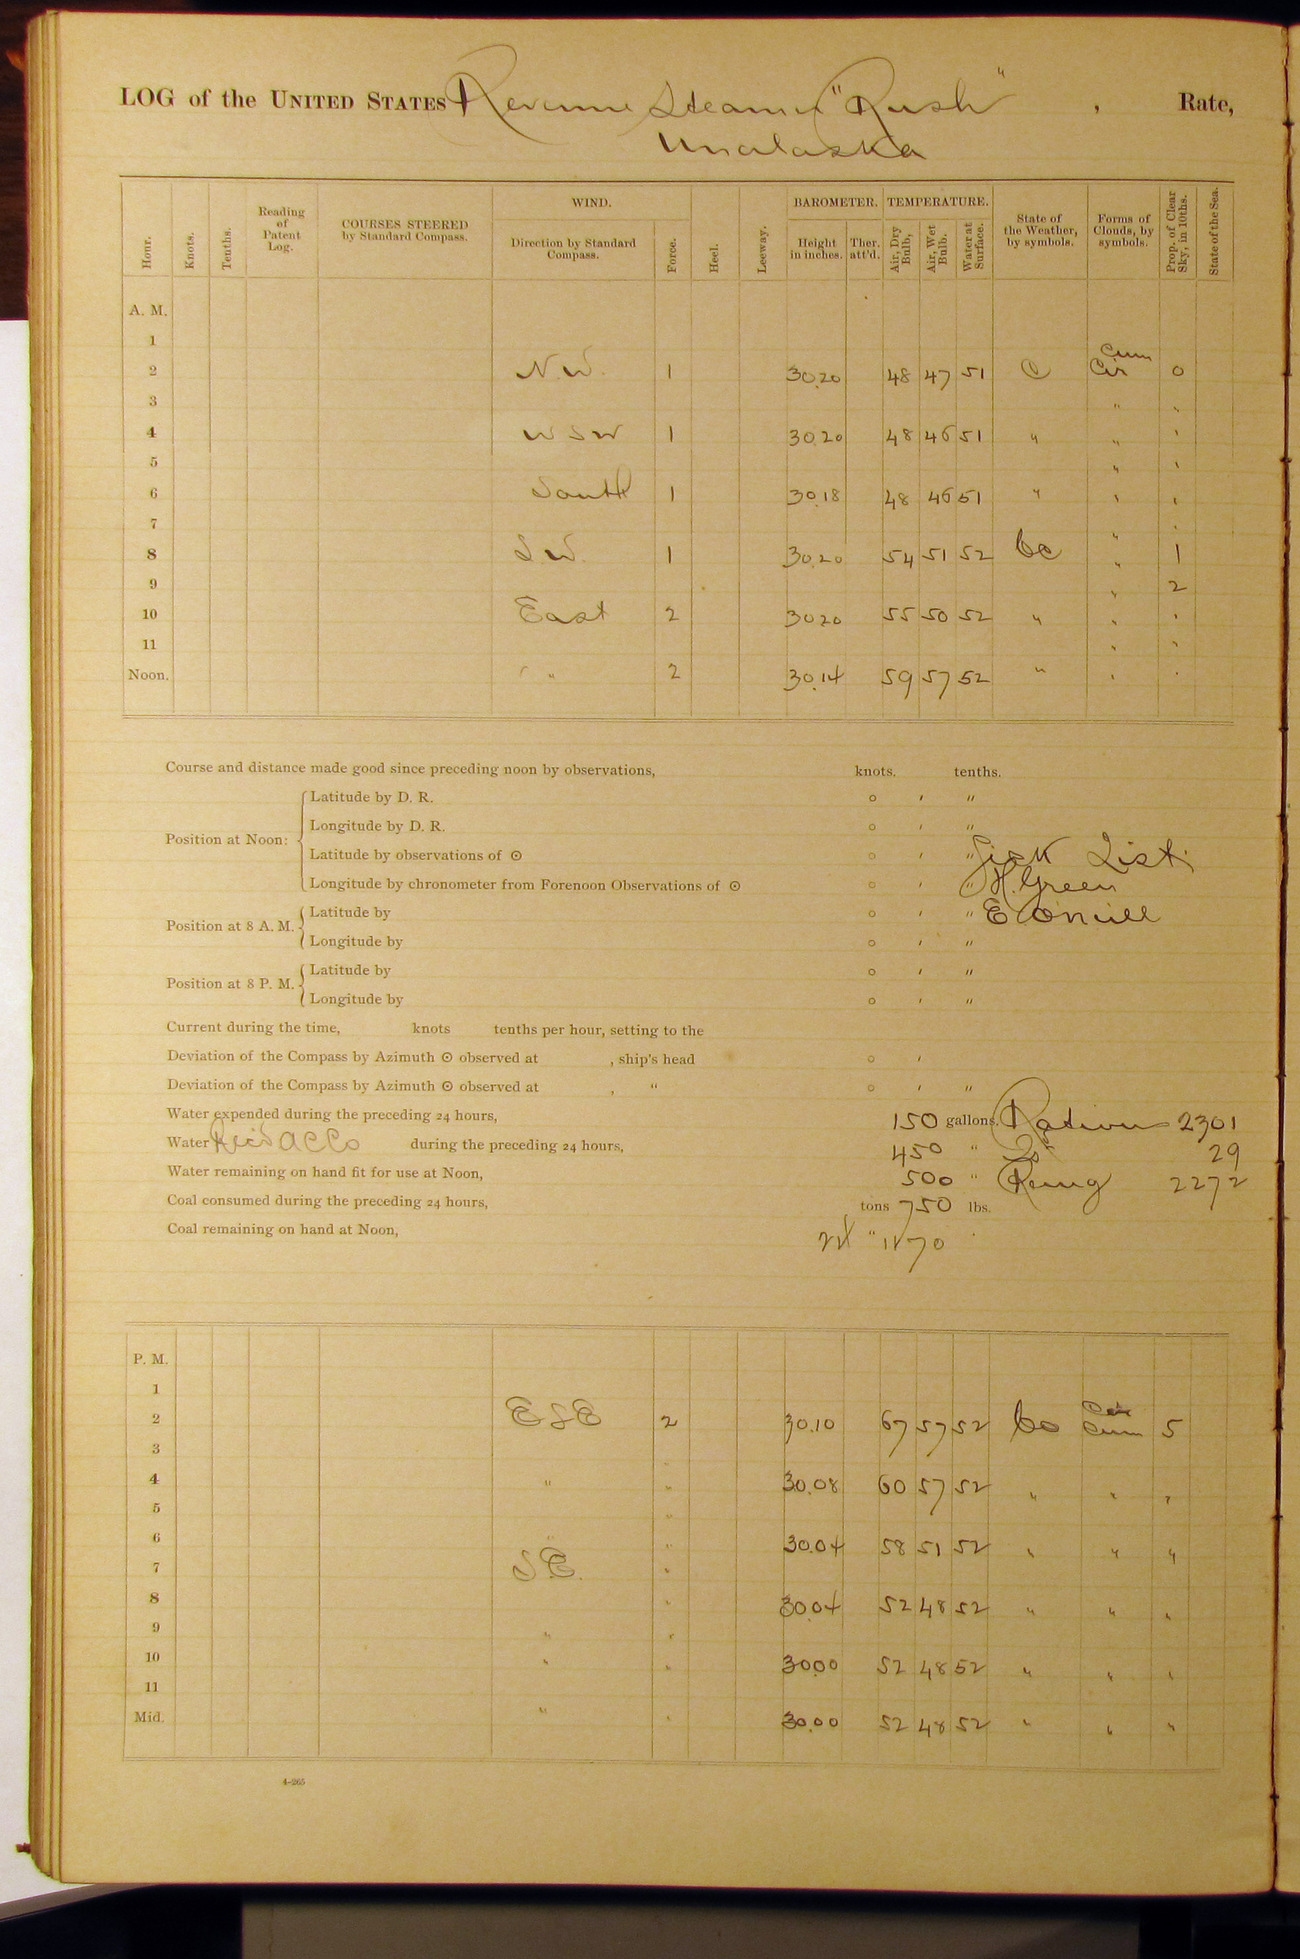 LOG of the UNITED STATES Revenue Steamer "Rush" , Rate,
Unalaska
Hour. Knots. Tenths. Reading of Patent Log. COURSES STEERED by Standard Compass. WIND. Direction by Standard Compass. Force. Heel. Leeway. BAROMETER. Height in inches. Ther. att'd. TEMPERATURE. Air, Dry Bulb, Air, Wet Bulb. Water at Surface. State of the Weather, by symbols. Forms of Clouds, by symbols. Prop. of Clear Sky, in 10ths. State of the Sea.
A. M.
1
2 N.W. 1 30.20 48 47 51 c Cum Cir 0
3 " "
4 WSW 1 30.20 48 46 51 " " "
5 " "
6 South 1 30.18 48 46 51 " " "
7 " "
8 SW. 1 30.20 54 51 52 bc " 1
9 " 2
10 East 2 30.20 55 50 52 " " "
11 " "
Noon. " " 2 30.14 59 57 52 " " "
Course and distance made good since preceding noon by observations, knots. tenths.
Position at Noon:
Latitude by D. R. ° ′ ″
Longitude by D. R. ° ′ ″
Latitude by observations of ⊙ ° ′ ″ Sick List.
Longitude by chronometer from Forenoon Observations of ⊙ ° ′ ″ H. Green
Position at 8 A. M. Latitude by ° ′ ″ E O'Neill
Longitude by ° ′ ″
Position at 8 P. M. Latitude by ° ′ ″
Longitude by ° ′ ″
Current during the time, knots tenths per hour, setting to the
Deviation of the Compass by Azimuth ⊙ observed at , ship's head ° ′
Deviation of the Compass by Azimuth ⊙ observed at , " ° ′ ″
Water expended during the preceding 24 hours, 150 gallons. Rations 2301
Water Rec'd during the preceding 24 hours, 450 " 29
Water remaining on hand fit for use at Noon, 500 " Remg 2272
Coal consumed during the preceding 24 hours, tons 750 lbs.
Coal remaining on hand at Noon, "
P. M.
1
2 ESE 2 30.10 67 57 52 bc Cir Cum 5
3
4 " " 30.08 60 57 52 " " "
5 "
6 " " 30.04 58 51 52 " " "
7 S.E. "
8 " 30.04 52 48 52 " " "
9 " "
10 " " 30.00 52 48 52 " " "
11
Mid. " " 30.00 52 48 52 " " "
4-265